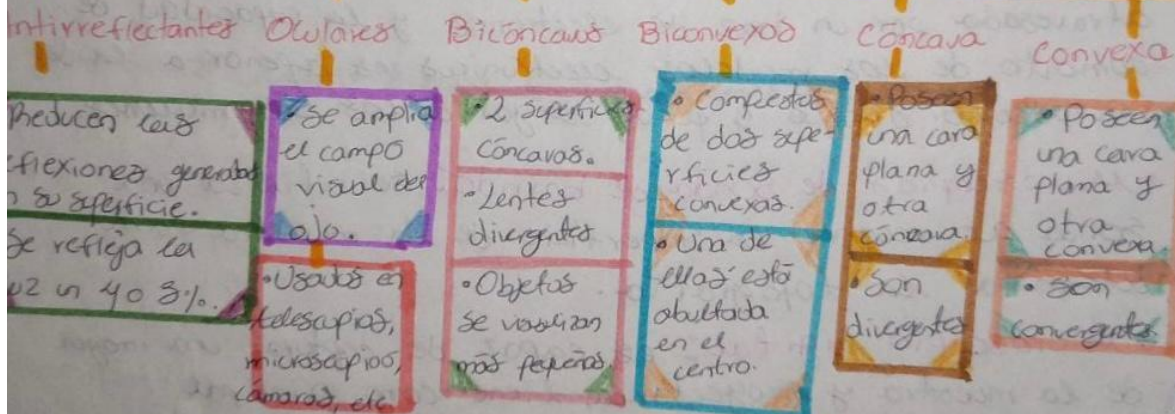 Antirreflectantes
Reducen las
reflexiones generadas
su superficie.
Se refleja la
luz un 4 o 8%.
Oculares
• Se amplia
el campo
visual del
ojo.
• Usados en
telescopios,
microscopios,
cámaras, etc
Bicóncavos
• 2 superficies
cóncavas.
• Lentes
divergentes
• Objetos
se visualizan
más pequeños
Biconvexos
• Compestos
de dos supe-
rficies
convexas.
• Una de
ellas está
abultada
en el
centro.
Cóncava
• Poseen
una cara
plana y
otra
cóncava.
• Son
divergentes
Convexa
• Poseen
una cara
plana y
otra
convexa
• Son
convergentes